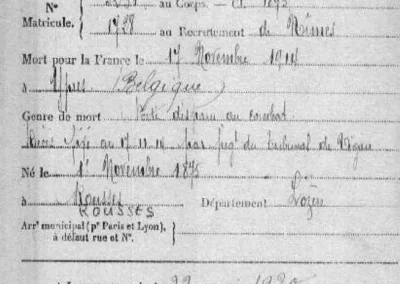 N° au Corps. — Cl. 1895
Matricule. 1728 au Recrutement de Nîmes
Mort pour la France le 17 Novembre 1914
à Ypres (Belgique)
Genre de mort disparu au combat
Décès fixé au 17.11.14 par jugt du Tribunal de
Né le 1er Novembre 1875
à Rousses Département Lozère
ROUSSES
Arrt municipal (pr Paris et Lyon),
à défaut rue et N°.
1920